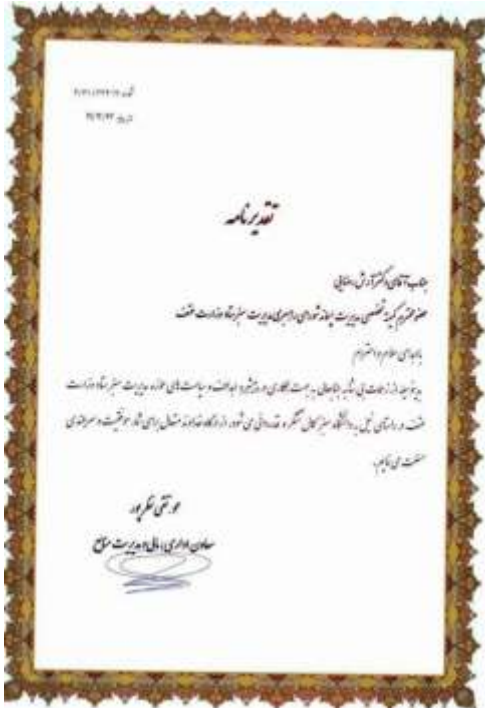 تقدیرنامه
جناب آقای دکتر آرش رضایی
عضو محترم کمیته تخصصی مدیریت پسماند شورای راهبری مدیریت سبز ستاد وزارت عتف
با اهدای سلام و احترام
بدینوسیله از زحمات بی شائبه جنابعالی به جهت همکاری در پیشبرد اهداف و سیاست های حوزه مدیریت سبز ستاد وزارت
عتف در راستای نیل به دانشگاه سبز کمال تشکر و قدردانی می شود. از درگاه خداوند متعال برای شما موفقیت و سربلندی
مسئلت می نمایم.
محمد تقی نظرپور
معاون اداری، مالی و مدیریت منابع